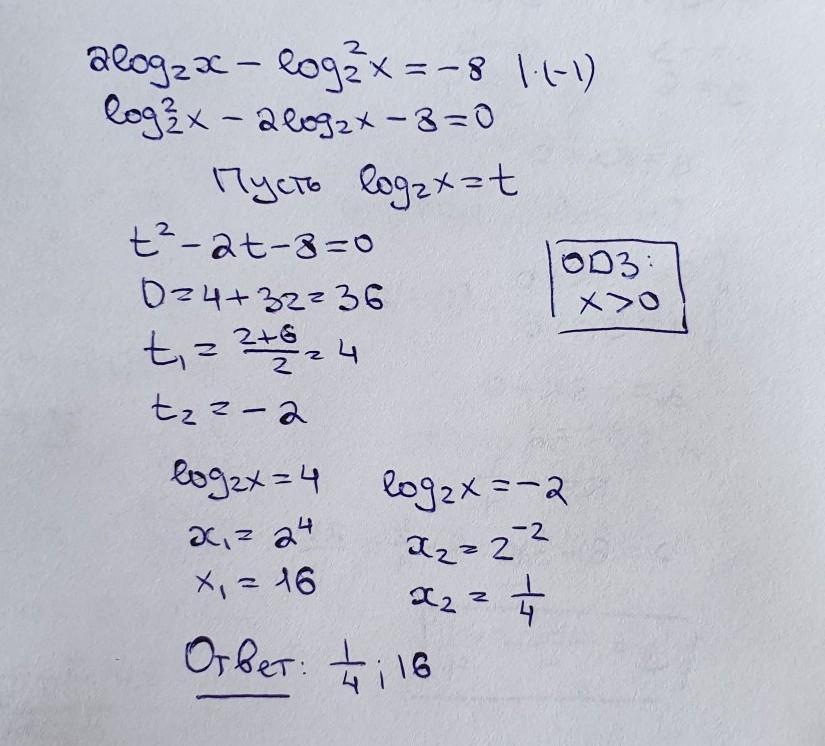 2log₂x − log₂²x = −8 |·(−1)
log₂²x − 2log₂x − 8 = 0
Пусть log₂x = t
t² − 2t − 8 = 0
D = 4 + 32 = 36
t₁ = (2+6)/2 = 4
t₂ = −2
ОДЗ:
x > 0
log₂x = 4
x₁ = 2⁴
x₁ = 16
log₂x = −2
x₂ = 2⁻²
x₂ = 1/4
Ответ: 1/4; 16